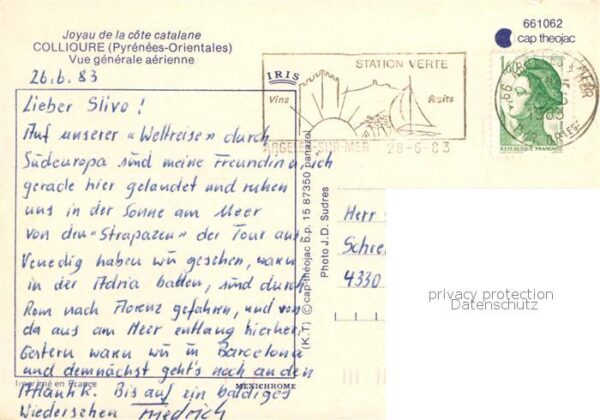 Joyau de la côte catalane
COLLIOURE (Pyrénées-Orientales)
Vue générale aérienne
26.6.83
661062
cap theojac
IRIS
STATION VERTE
Vins
Fruits
ARGELES-SUR-MER 28-6-83
1,60
REPUBLIQUE FRANÇAISE
Lieber Slivo!
Auf unserer "Weltreise" durch
Südeuropa sind meine Freundin u. ich
gerade hier gelandet und ruhen
uns in der Sonne am Meer
von den "Strapazen" der Tour aus.
Venedig haben wir gesehen, waren
in der Adria baden, sind durch
Rom nach Florenz gefahren, und von
da aus am Meer entlang hierher.
Gestern waren wir in Barcelona
und demnächst geht's noch an den
Atlantik. Bis auf ein baldiges
Wiedersehen Friedrich
Imprimé en France
MEXICHROME
(K.T) © cap theojac b.p. 15 87350 panazol
Photo J.D. Sudres
Herr
Schre
4330
privacy protection
Datenschutz